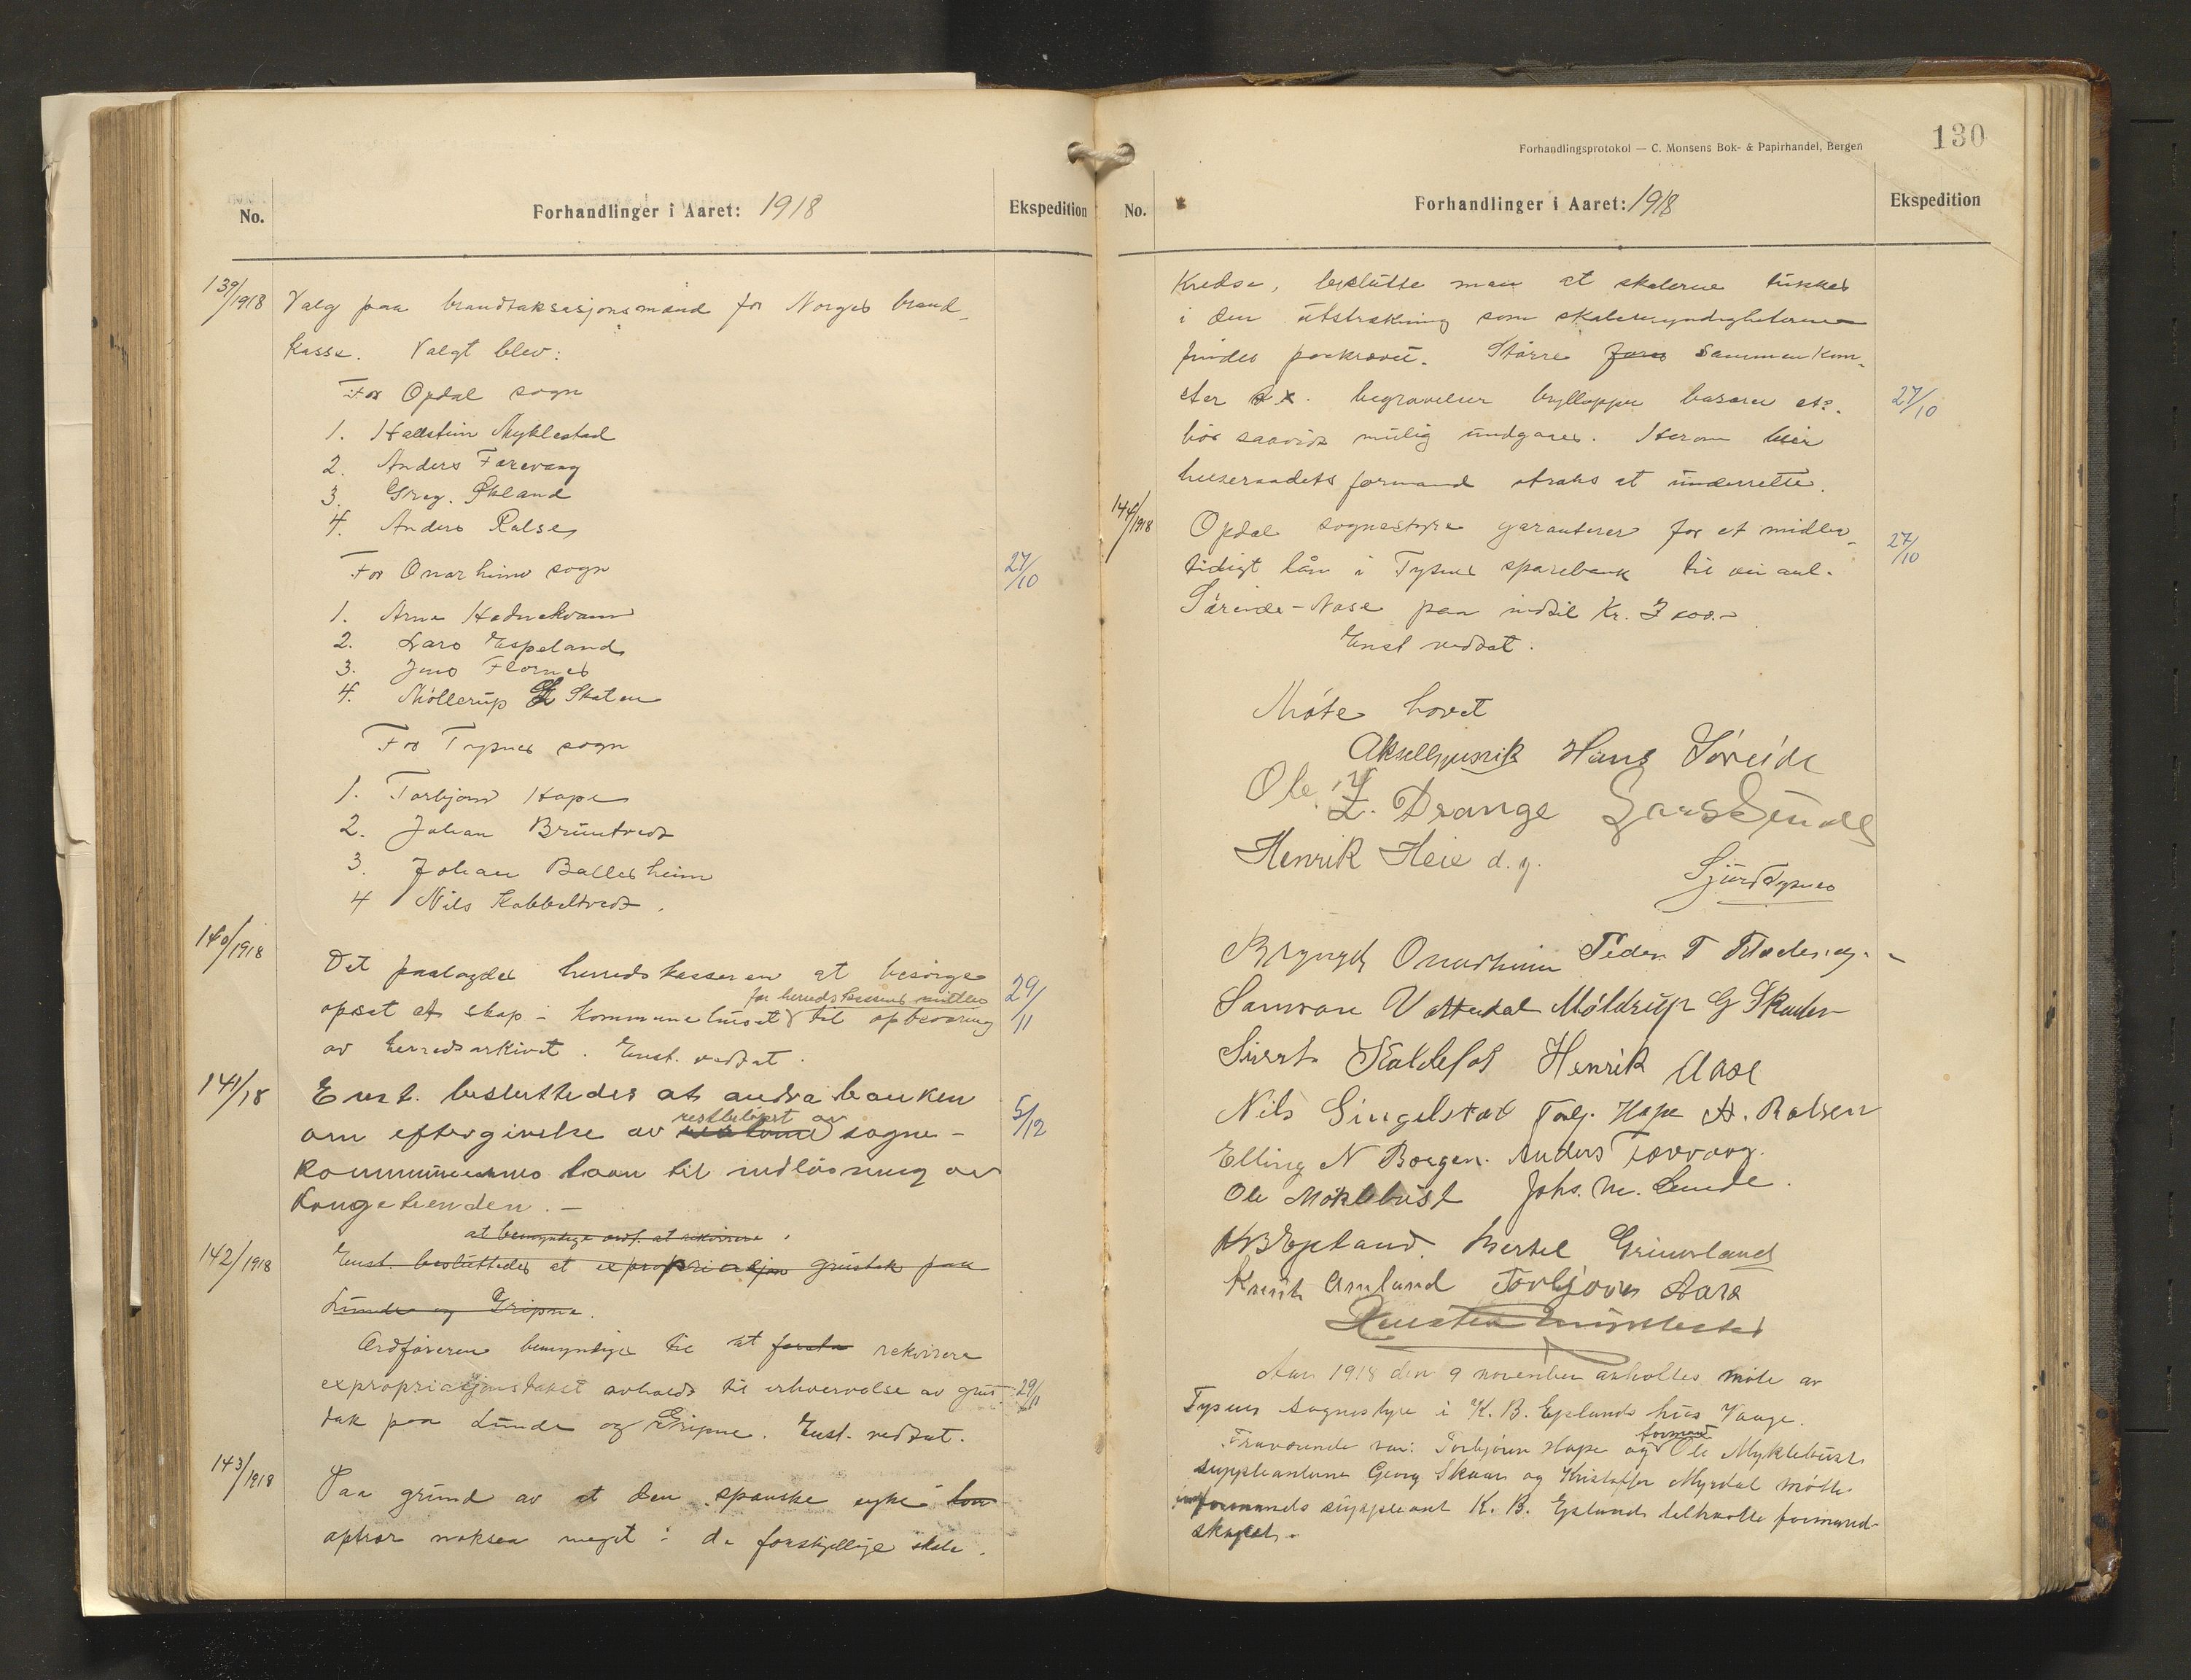 No.
Forhandlinger i Aaret: 1918
Ekspedition
139/1918
Valg paa brandtaksasjonsmænd for Norges brand-
kasse. Valgt blev:
For Opdal sogn
1. Hallstein Myklestad
2. Anders Færevaag
3. Greg. Økland
4. Anders Ralsen
For Onarheim sogn
27/10
1. Arne
2. Lars Espeland
3. Jens Flornes
4. Møllerup G Skaten
For Tysnes sogn
1. Torbjørn Hope
2. Johan Bruntvedt
3. Johan Ballesheim
4 Nils Kobbeltvedt.
140/1918
Det paalagdes herredskasseren at besørge
for herredskassens midler
opsat et skap i kommunehuset til opbevaring
29/11
av herredsarkivet. Enst. vedtat.
141/18
Enst. besluttedes at andra banken
restbeløpet av
om eftergivelse av sogne-
5/12
kommunernes laan til indløsning av
Kongetienden. -
at bemyndige ordf. at rekvirere
142/1918
Enst. besluttedes at expropriasjon grustak paa
Lunde og Gripne.
Ordføreren bemyndiges til at rekvirere
expropriasjonstakst avholdt til erhvervelse av grus-
29/11
tak paa Lunde og Gripne. Enst. vedtat.
143/1918
Paa grund av at den "spanske syke"
optrær noksaa meget i de forskjellige skole-
Forhandlingsprotokol — C. Monsens Bok- & Papirhandel, Bergen
130
No.
Forhandlinger i Aaret: 1918
Ekspedition
Kredse, beslutte man at skolerne lukkes
i den utstrækning som skolemyndigheterne
finder paakrævet. Større sammenkom-
ster t.x. begravelser bryllopper basarer etc.
27/10
bør saavidt mulig undgaaes. Herom blir
helseraadets formand straks at underrette.
144/1918
Opdal sognestyre garanterer for et midler-
27/10
tidigt lån i Tysnes sparebank til veianl.
Søreide-Nase paa indtil Kr. 3000.-
Enst vedtat.
Møte hævet
Hans Søreide
Ole Z. Drange
Henrik Heie d. y.
Sjurd Tysnes
Brynjulf Onarheim Peder T
Samson Vattedal Møldrup G Skaten
Sivert Kaldefos Henrik Aase
Nils Singelstad Torbj. Hope A. Ralsen
Elling N Borgen. Anders Færevaag.
Ole Møklebust Johs. M. Lunde.
K B Epland. Mertel Grimsland
Knut Amland Torbjørn Aara
Hallstein Myklestad
Aar 1918 den 9 november avholdtes møte av
Tysnes sognestyre i K. B. Eplands hus Vaage.
formand
Fraværende var: Torbjørn Hope og Ole Myklebust.
suppleanterne Georg Skaar og Kristoffer Myrdal møtte
formands suppleant K. B. Epland tiltraatte formand-
skapet.